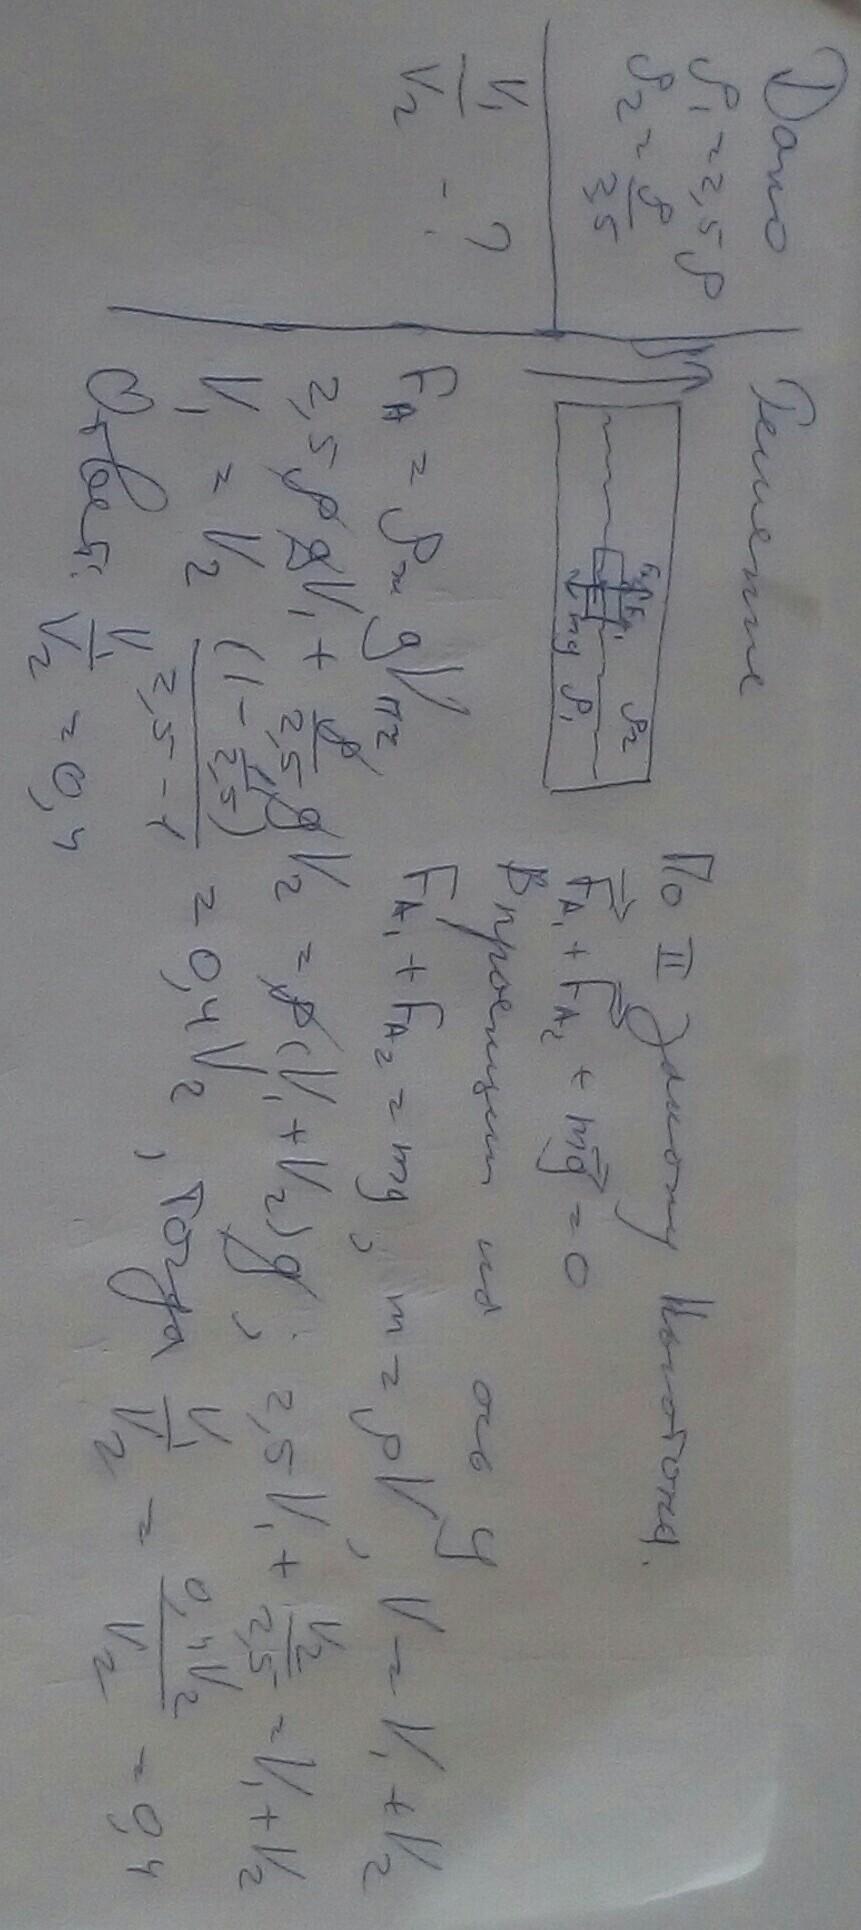 Дано
ρ₁ = 2,5 ρ
ρ₂ = ρ/2,5
V₁/V₂ - ?
Решение
F_A₂ F_A₁
mg ρ₁ ρ₂
По II закону Ньютона.
F⃗_A₁ + F⃗_A₂ + mg⃗ = 0
В проекции на ось y
F_A = ρ_ж g V_пг F_A₁ + F_A₂ = mg; m = ρV, V = V₁ + V₂
2,5 ρ g V₁ + ρ/2,5 g V₂ = ρ (V₁ + V₂) g; 2,5 V₁ + V₂/2,5 = V₁ + V₂
V₁ = V₂ (1 - 1/2,5)/(2,5 - 1) = 0,4 V₂, тогда V₁/V₂ = 0,4V₂/V₂ = 0,4
Ответ: V₁/V₂ = 0,4